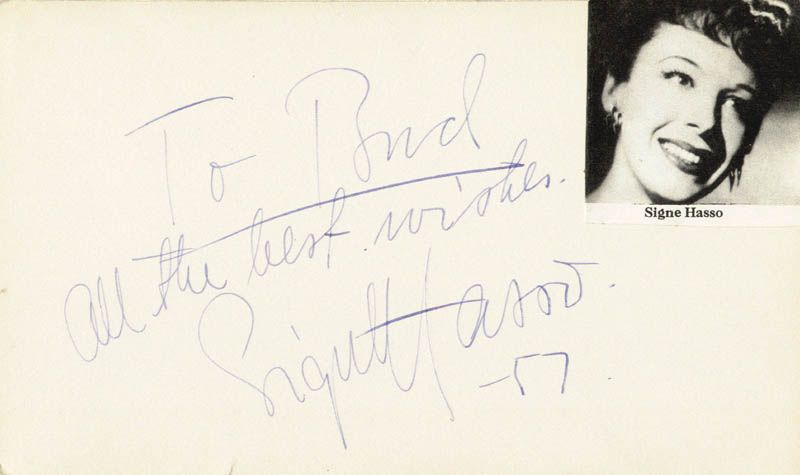 To Bud
all the best wishes.
Signe Hasso.
-57.
Signe Hasso